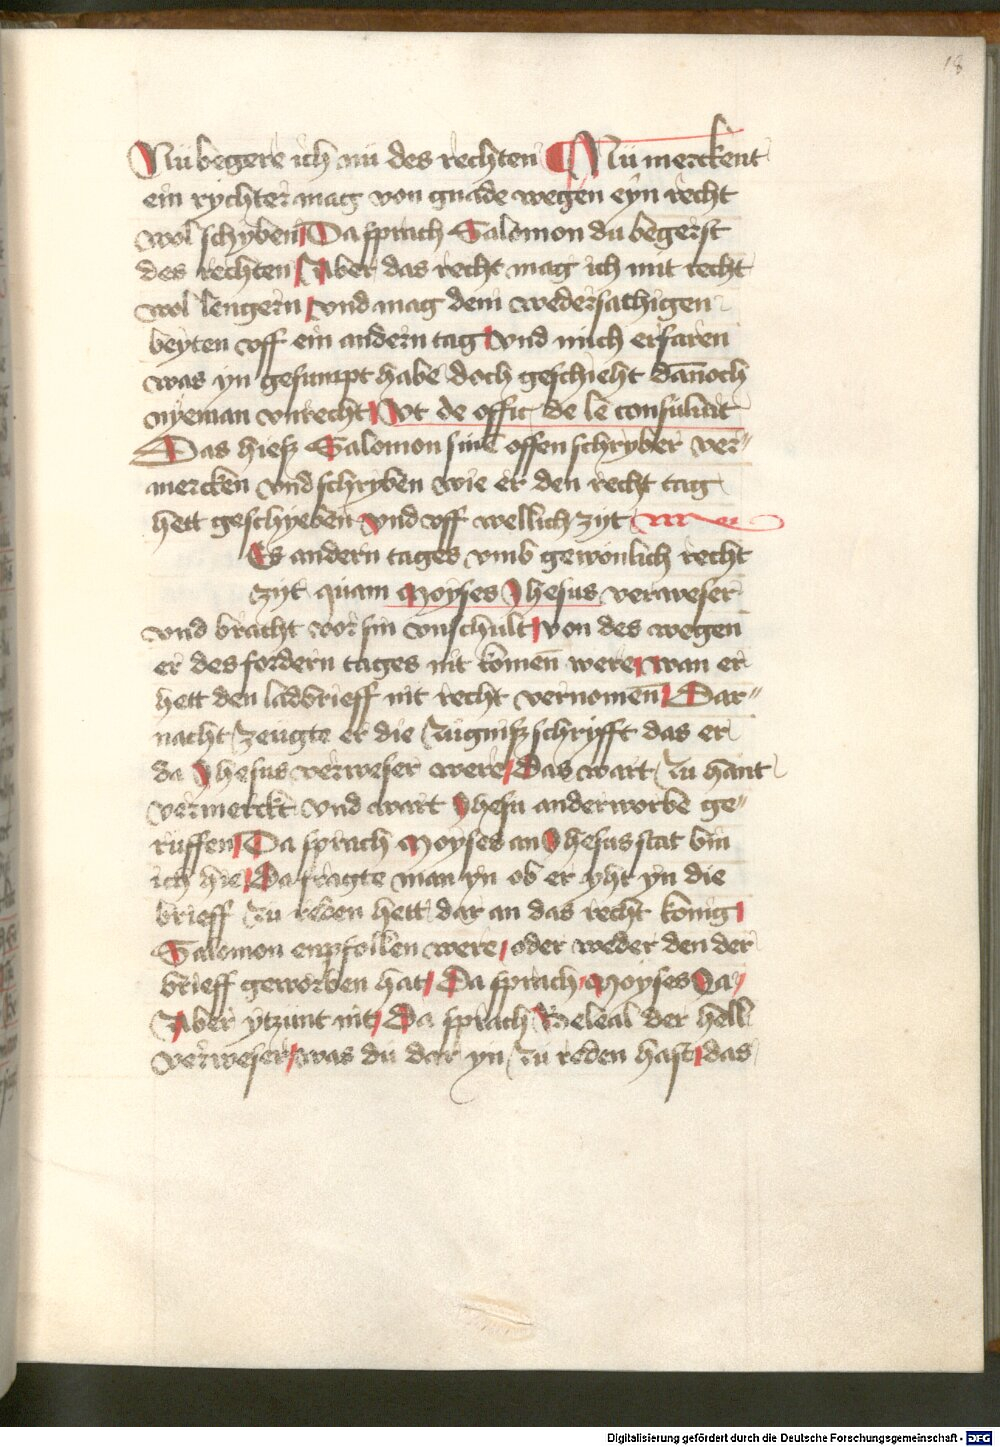 18
Nü begere ich nü des rechten ¶ Nü merckent
ein rychter mag von gnade wegen eyn recht
wol schyben / Da sprach Salomon du begerst
des rechten / Aber das recht mag ich mit recht
wol lengern / vnd mag dem wedersachigen
beyten vff ein andern tag / vnd mich erfaren
was yn gesumpt habe doch geschieht dañoch
nyeman vnrecht / vt de offic de le consuluit
Das hiesz Salomon sine offen schryber ver"
mercken vnd schryben wie er den recht tag
hett geschyeben vnd vff wellich zyt
Es andern tages vmb gewonlich recht
zyt quam Moyses Jhesus verweser
vnd bracht vor sin vnschult / von des wegen
er des fordern tages nit komen̄ were / wan er
hett den ladbrieff nit recht vernomen̄ / Dar"
nacht zeugte er die zügnisz schryfft das er
da Jhesus verweser were / Das wart zu hant
vermerckt vnd wart Jhesu anderworbe ge"
ruffen / Da sprach Moyses an Jhesus stat bin
ich hie / Da fragte man yn ob er yht yn die
brieff zu reden hett dar an das recht konig /
Salomon enpfollen were / oder weder den der
brieff geworben hat / Da sprach Moyses Ja /
Aber ytzunt nit / Da sprach Beleal der hell
verweser / was du dar yn zu reden hast / das
Digitalisierung gefördert durch die Deutsche Forschungsgemeinschaft - DFG